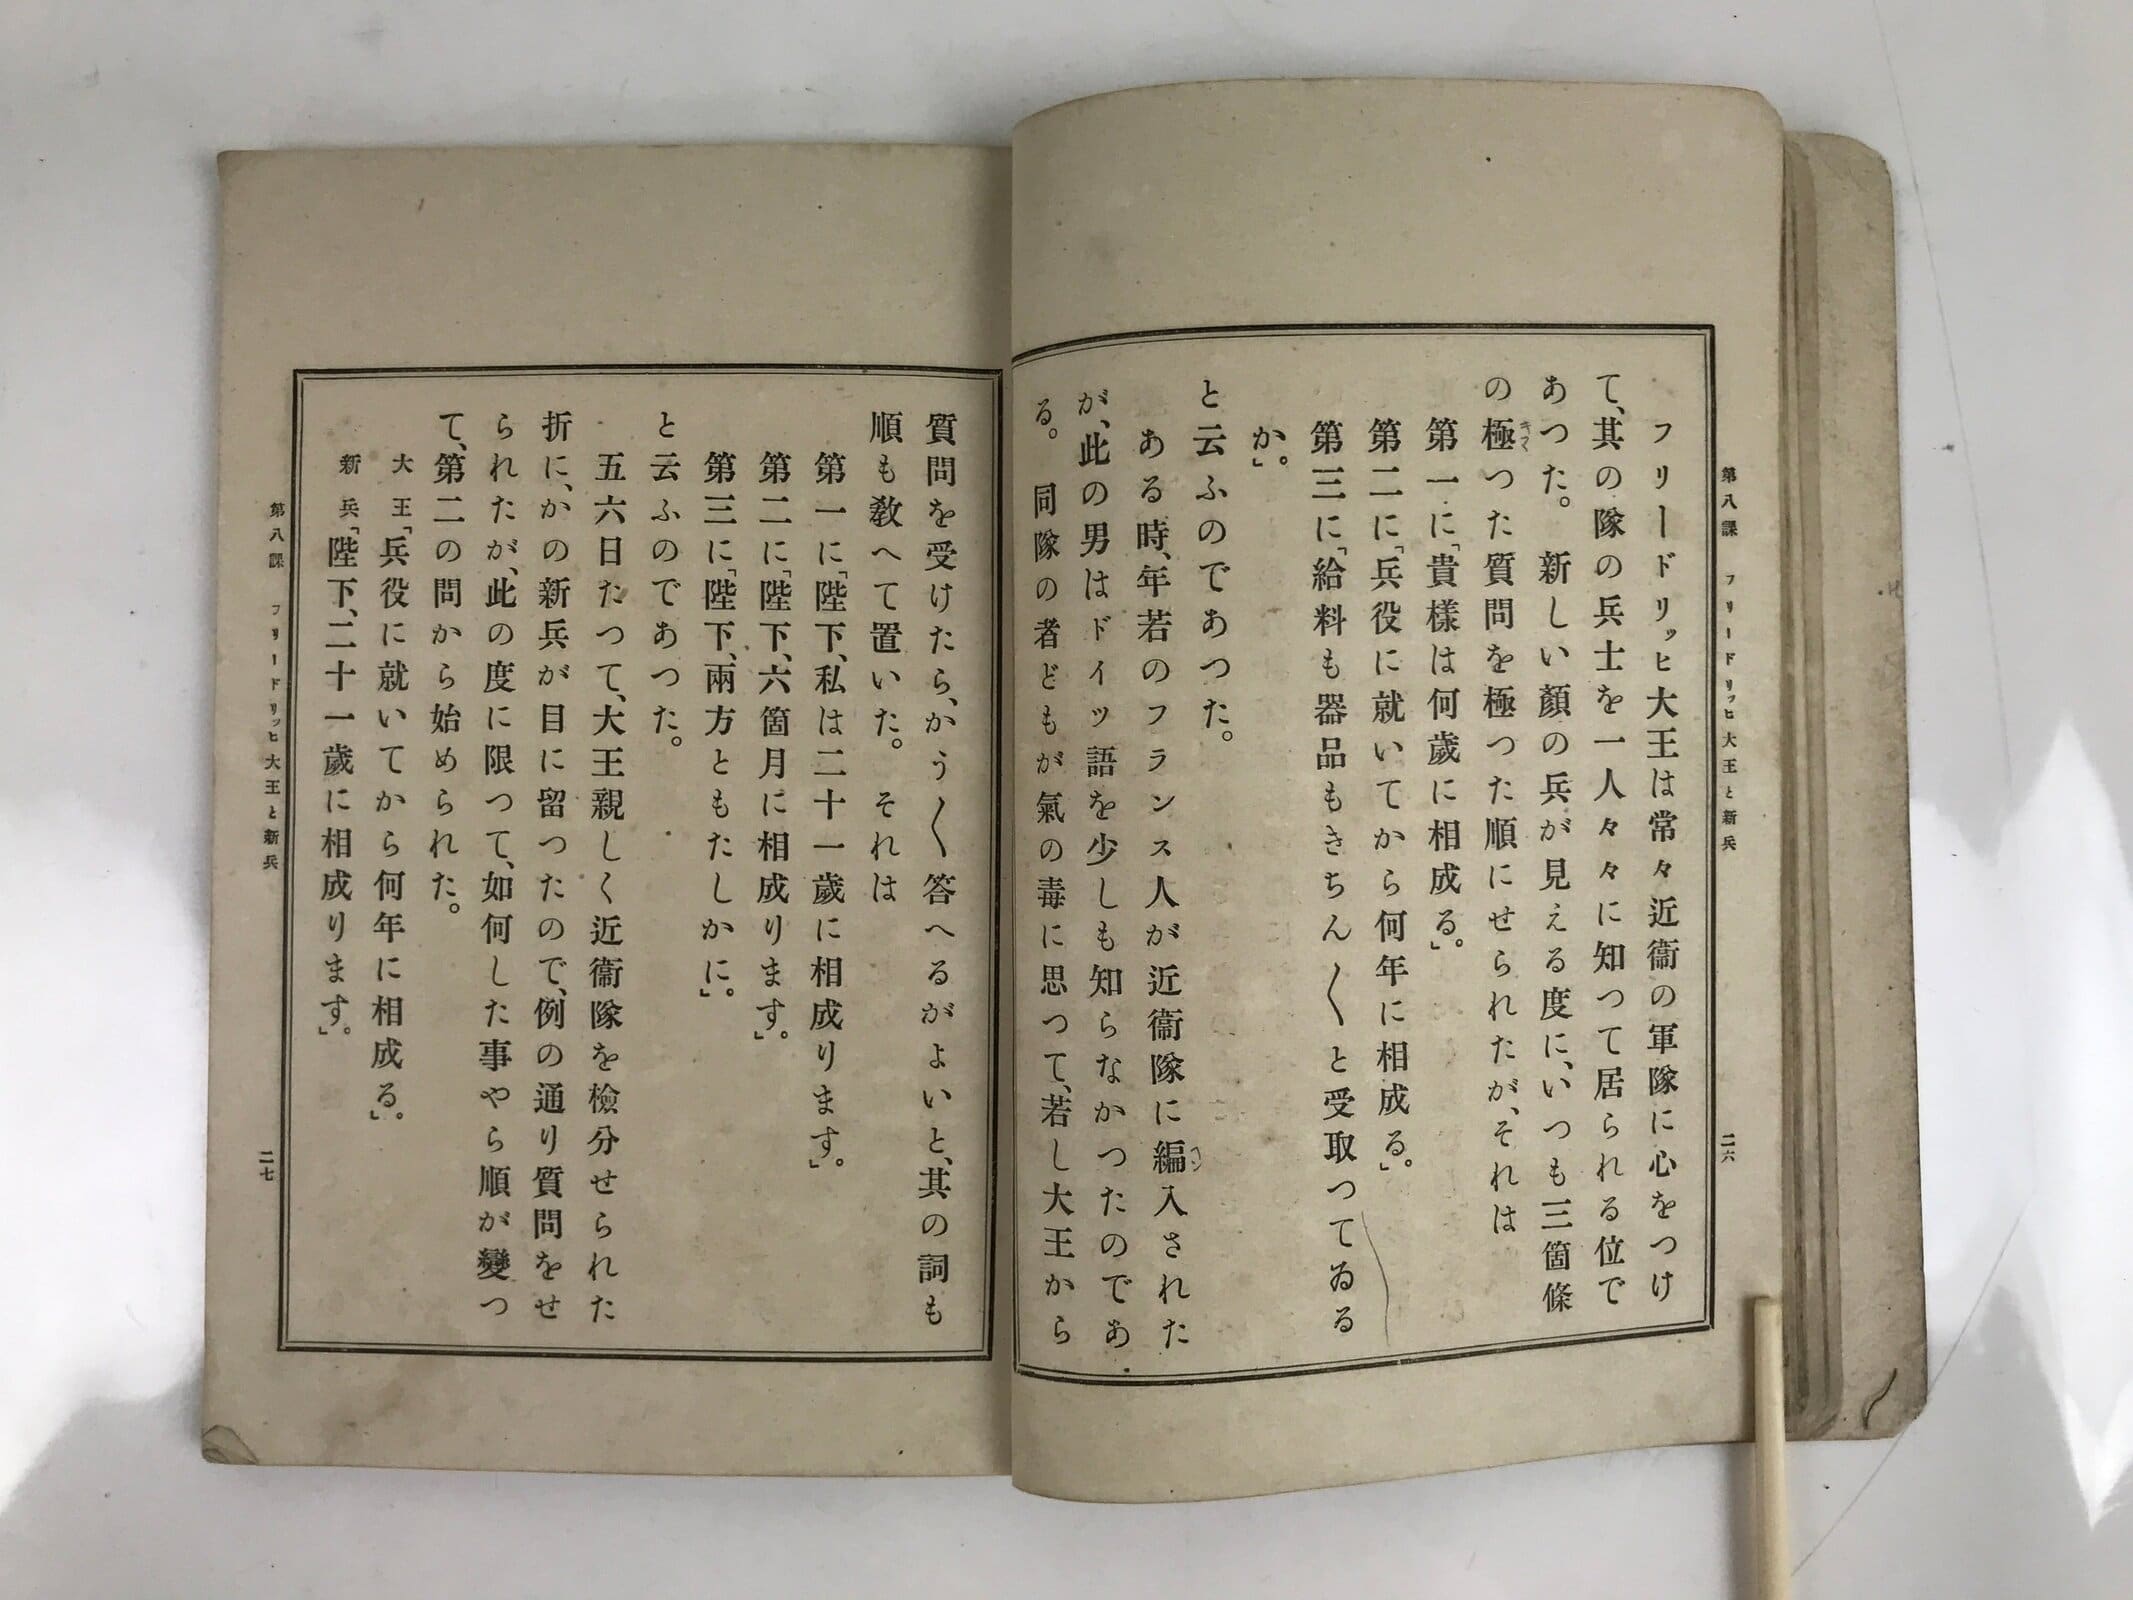 第八課　フリードリッヒ大王と新兵　二六
フリードリッヒ大王は常々近衞の軍隊に心をつけ
て、其の隊の兵士を一人々々に知つて居られる位で
あつた。新しい顏の兵が見える度に、いつも三箇條
の極つた質問を極つた順にせられたが、それは
キマ
第一に「貴樣は何歲に相成る。」
第二に「兵役に就いてから何年に相成る。」
第三に「給料も器品もきちん〱と受取つてゐる
か。」
と云ふのであつた。
ある時、年若のフランス人が近衞隊に編入された
ヘン
が、此の男はドイツ語を少しも知らなかつたのであ
る。同隊の者どもが氣の毒に思つて、若し大王から
質問を受けたら、かう〱答へるがよいと、其の詞も
順も敎へて置いた。それは
第一に「陛下、私は二十一歲に相成ります。」
第二に「陛下、六箇月に相成ります。」
第三に「陛下、兩方ともたしかに。」
と云ふのであつた。
五六日たつて、大王親しく近衞隊を檢分せられた
折に、かの新兵が目に留つたので、例の通り質問をせ
られたが、此の度に限つて、如何した事やら順が變つ
て、第二の問から始められた。
大王「兵役に就いてから何年に相成る。」
新兵「陛下、二十一歲に相成ります。」
第八課　フリードリッヒ大王と新兵　二七